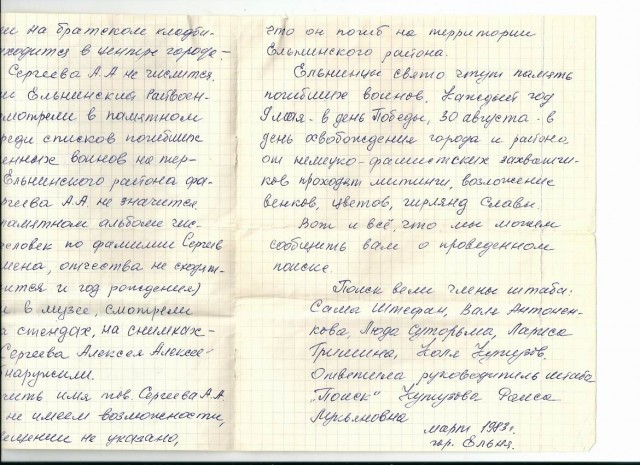 ми на братском кладби-
ходится в центре города -
Сергеева А.А не числится.
ми Ельнинский Райвоен-
мотрели в памятном
реди списков погибших
енных воинов на тер-
Ельнинского района фа-
ргеева А.А не значится
памятном альбоме чис-
человек по фамилии Сергеев
мена, отчества не сходит-
ится и год рождения)
и в музее, смотрели
а стендах, на снимках -
Сергеева Алексея Алексее-
бнаружили.
чить имя тов. Сергеева А.А.
не имеем возможности,
ещении не указано,
что он погиб на территории
Ельнинского района.
Ельнинцы свято чтут память
погибших воинов. Каждый год
9 мая - в день Победы, 30 августа - в
день освобождения города и района
от немецко-фашистских захватчи-
ков проходят митинги, возложение
венков, цветов, гирлянд Славы.
Вот и всё, что мы можем
сообщить вам о проведенном
поиске.
Поиск вели члены штаба:
Саша Штефан, Валя Антонен-
кова, Люда Суторьма, Лариса
Тришина, Коля Кутузов.
Ответила руководитель штаба
"Поиск" Кутузова Раиса
Лукьяновна
март 1983г.
гор. Ельня.